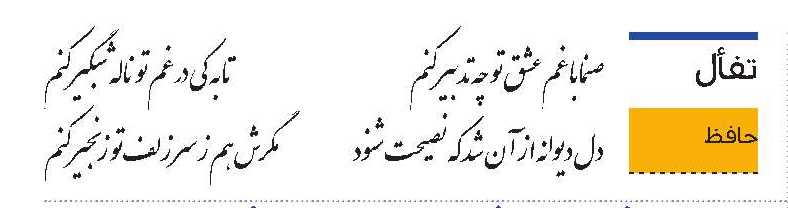 تفأل
حافظ
صنما با غم عشق تو چه تدبیر کنم تا به کی در غم تو ناله شبگیر کنم
دل دیوانه از آن شد که نصیحت شنود مگرش هم ز سر زلف تو زنجیر کنم